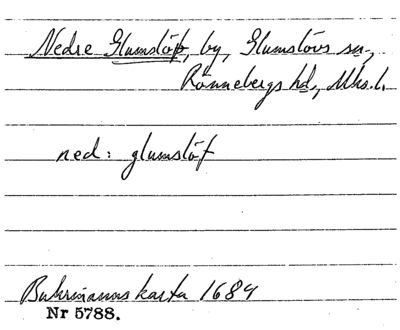 Nedre Glumslöf, by, Glumslövs sn,
Rönnebergs hd, Mhs. l.
ned: glumslöf
Buhrmanns karta 1684
Nr 5788.